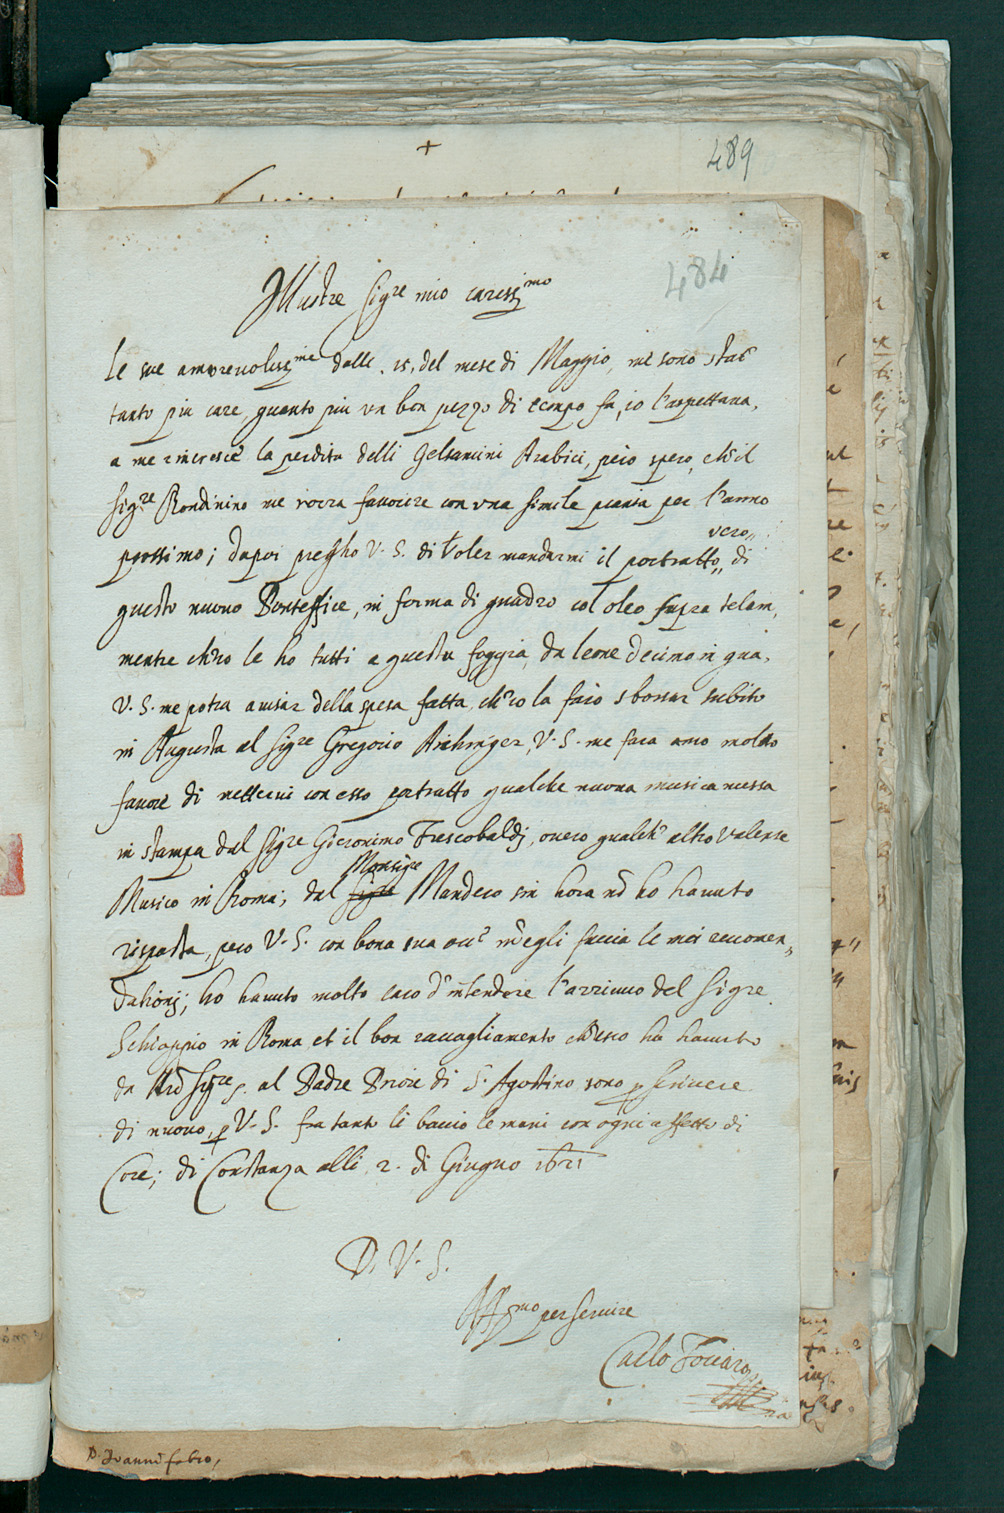 489
484
Illustre Sigre mio cariss.mo
Le sue amorevoliss.me delli .15. del mese di Maggio, mi sono state
tanto piu care, quanto piu un bon pezzo di tempo fa, io l'aspettava,
a me rincresce la perdita delli Gelsamini Arabici, però spero, ch'il
Sig.re Rondinino me vorra favorire con una simile pianta per l'anno
prossimo; dapoi pregho V. S. di voler mandarmi il portratto,, di
vero,,
questo nuovo Ponteffice, in forma di quadro col oleo supra telam,
mentre ch'io le ho tutti a questa foggia, da leone decimo in qua,
V. S. me potra avisar della spesa fatta, ch'io la farò sborsar subito
in Augusta al Sigre Gregorio Aichinger, V. S. me fara anco molto
favore di mettermi con esso portratto qualche nuova musica messa
in stampa dal Sigre Gieronimo Frescobaldj, overo qualch' altro valense
Monsigre
Musico in Roma; dal Sigre Mandeco sin hora nō ho havuto
risposta, pero V. S. con bona sua occ.e m'egli faccia le mie recomen,,
dationj; ho havuto molto caro d'intendere l'arrivuo del Sigre
Schioppio in Roma et il bon ravagliamento ch'esso ha havuto
da Nrō Sigre S. al Padre Priore di S. Agostino sono p scrivere
di nuovo, p V. S. fra tanto li baccio le mani con ogni affetto di
Core; di Constanza alli .2. di Giugno 1621
D. V. S.
Aff.mo per servire
Carlo
D. Joanni fabro,